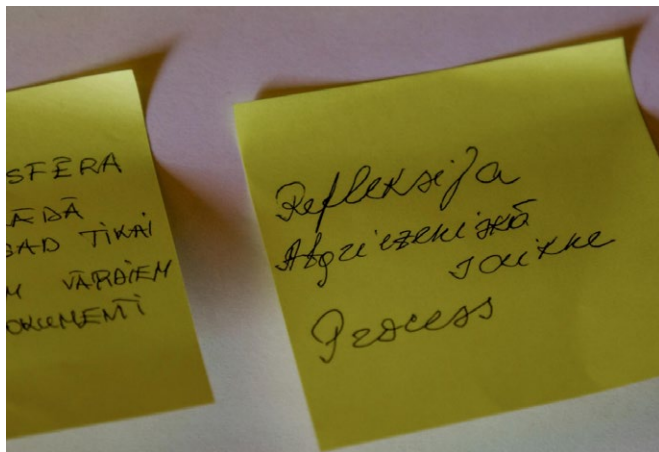 SFĒRA
ĀDĀ
GAD TIKAI
M VĀRDIEM
OKUMENTI
Refleksija
Atgriezeniskā
saikne
Process